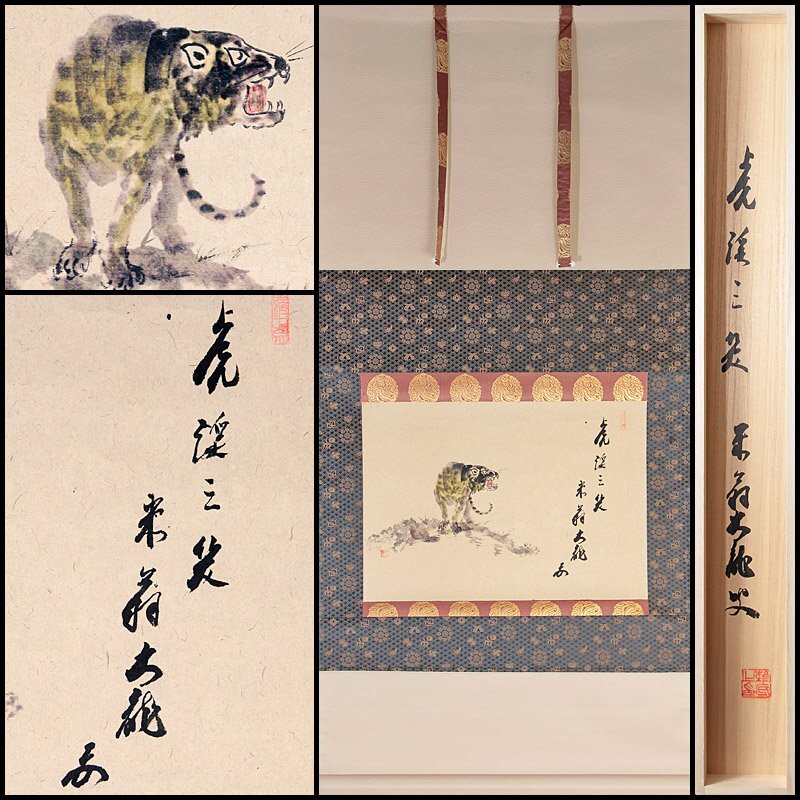 虎渓三笑
米翁大龍
虎渓三笑
米翁大龍
虎渓三笑 米翁大龍叟